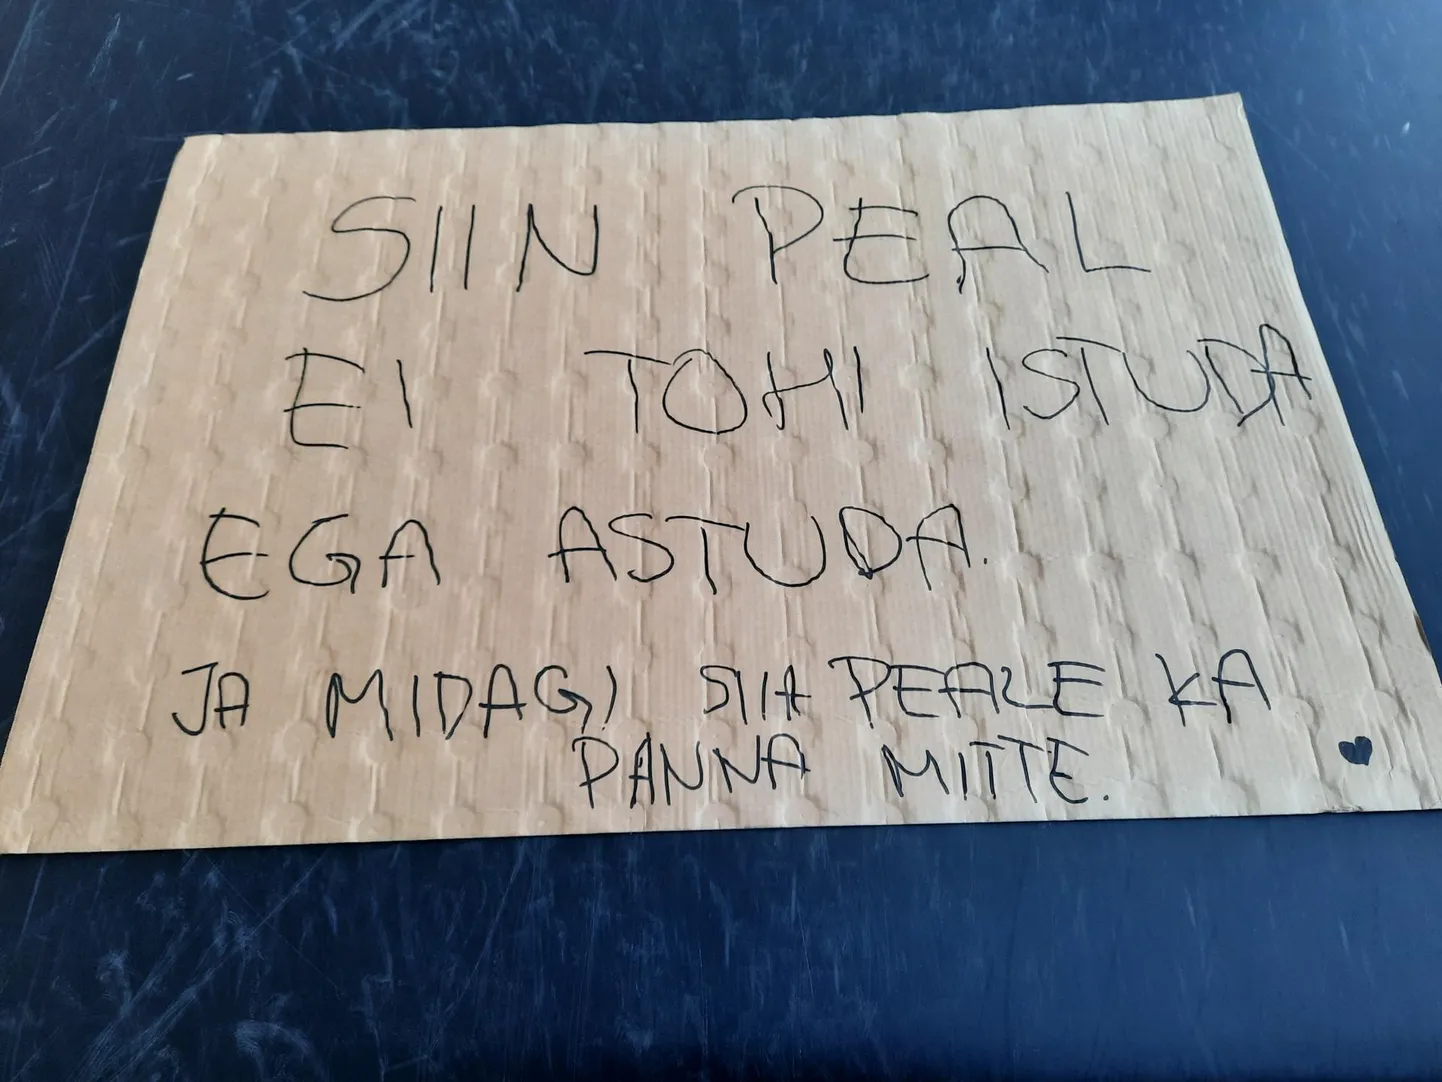 SIIN PEAL
EI TOHI ISTUDA
EGA ASTUDA.
JA MIDAGI SIIA PEALE KA
PANNA MITTE.